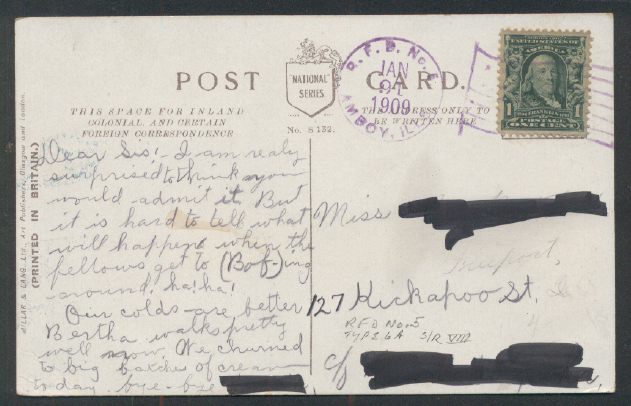 POST CARD.
"NATIONAL" SERIES
No. S 132.
THIS SPACE FOR INLAND
COLONIAL AND CERTAIN
FOREIGN CORRESPONDENCE
THE ADDRESS ONLY TO
BE WRITTEN HERE
R. F. D. No. 5
JAN
1909
AMBOY, ILL.
UNITED STATES OF AMERICA
FRANKLIN
1 POSTAGE 1
ONE CENT
MILLAR & LANG, Ltd., Art Publishers, Glasgow and London.
(PRINTED IN BRITAIN.)
Dear Sis:- I am realy
surprised to think you
would admit it. But
it is hard to tell what
will happen when the
fellows get to (Bof-)ing
around. ha! ha!
Our colds are better
Bertha walks pretty
well now. We churned
to big batches of cream
to day. bye-bye
Miss
Freeport,
127 Kickapoo St.
RFD No. 5
TYPE 6A S/R VIII
c/o